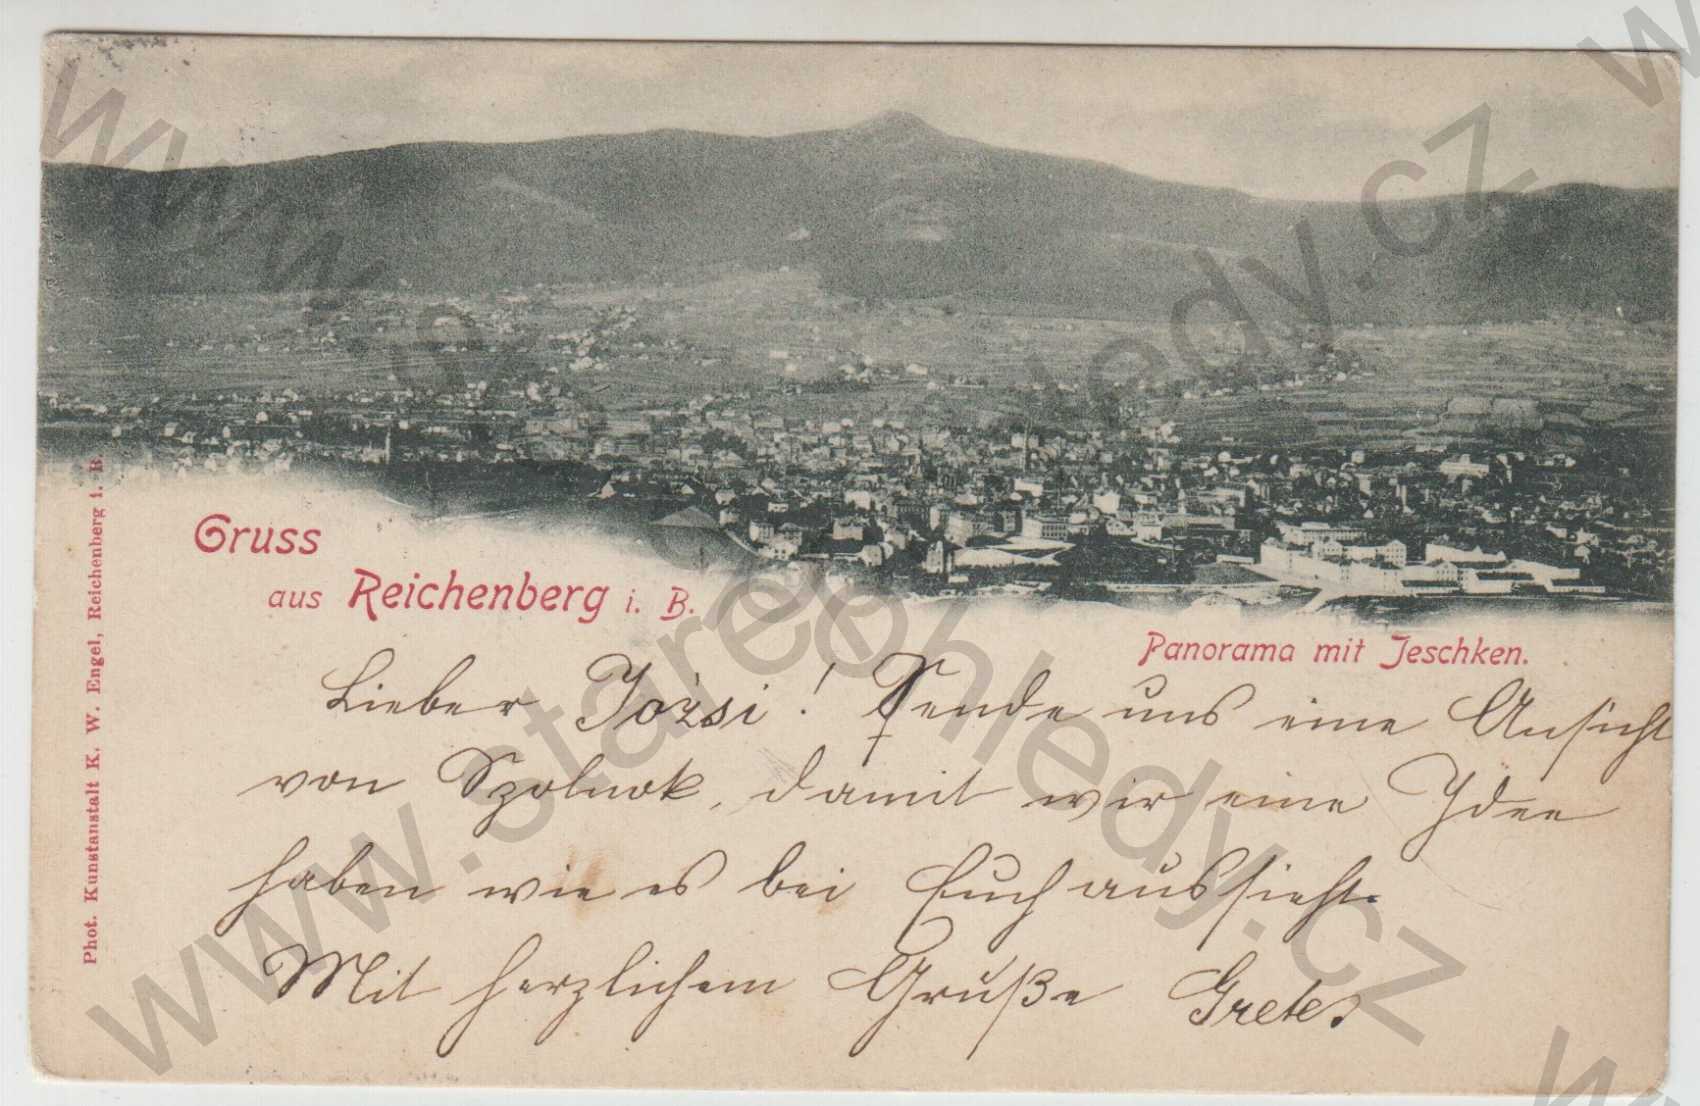 Gruss
aus Reichenberg i. B.
Panorama mit Jeschken.
Lieber Józsi! Sende uns eine Ansicht
von Szolnok, damit wir eine Idee
haben wie es bei Euch aussieht.
Mit herzlichem Gruße Grete
Phot. Kunstanstalt K. W. Engel, Reichenberg i. B.
www.stareohledy.cz
www.stareohledy.cz